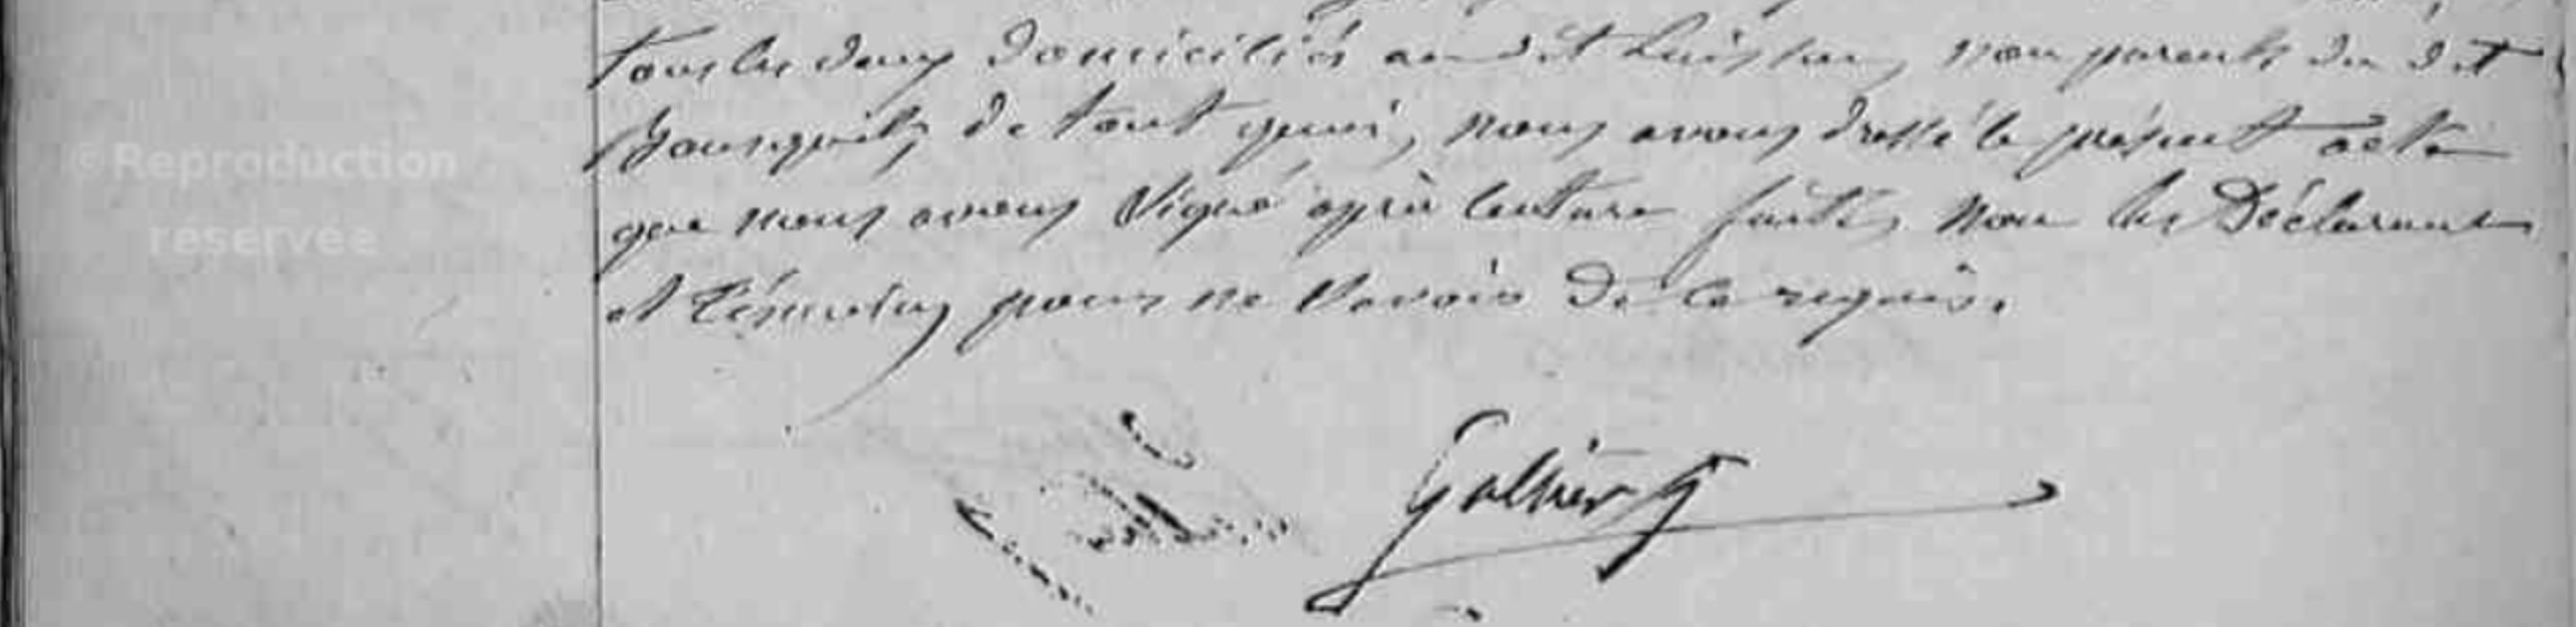 © Reproduction
réservée
tous les deux domiciliés au dit non parents du dit
de tout quoi, nous avons dressé le présent acte
que nous avons signé après lecture faite, non les Déclarants
et témoins pour ne savoir de ce requis.